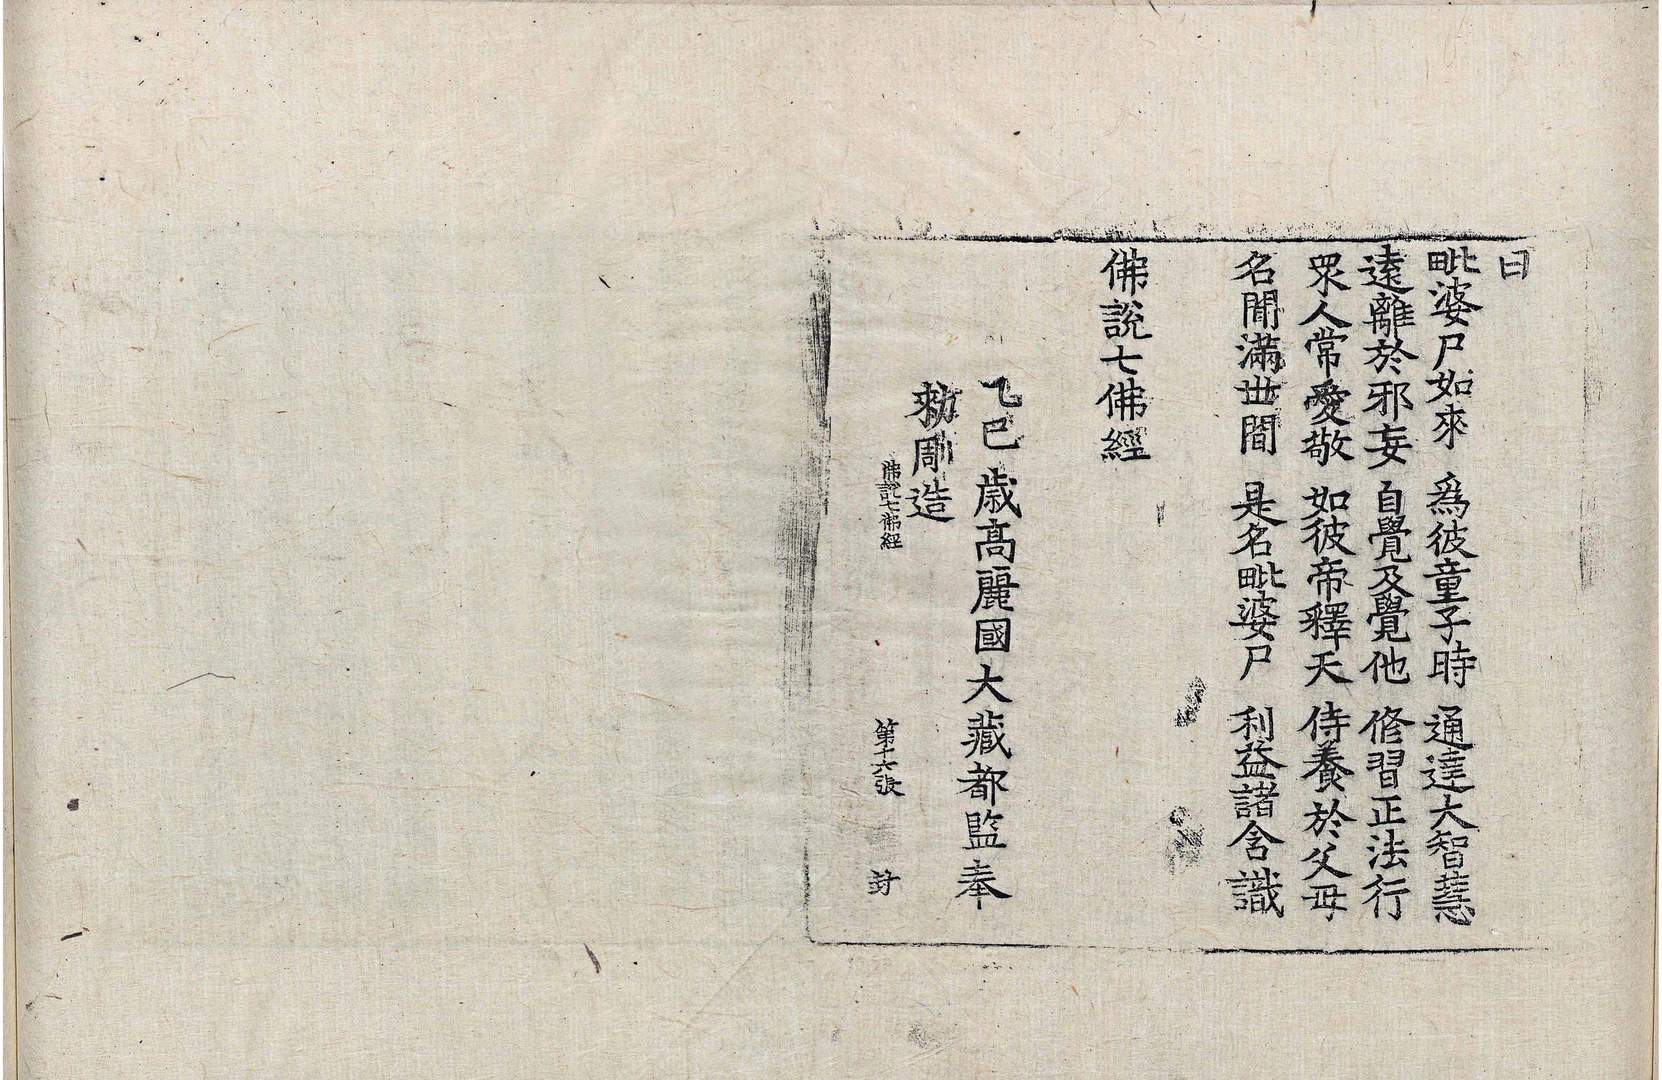 曰
毗婆尸如來 爲彼童子時 通達大智慧
遠離於邪妄 自覺及覺他 修習正法行
眾人常愛敬 如彼帝釋天 侍養於父母
名聞滿世間 是名毗婆尸 利益諸含識
佛說七佛經
乙巳歲高麗國大藏都監奉
勑彫造
佛說七佛経 第十六張 封